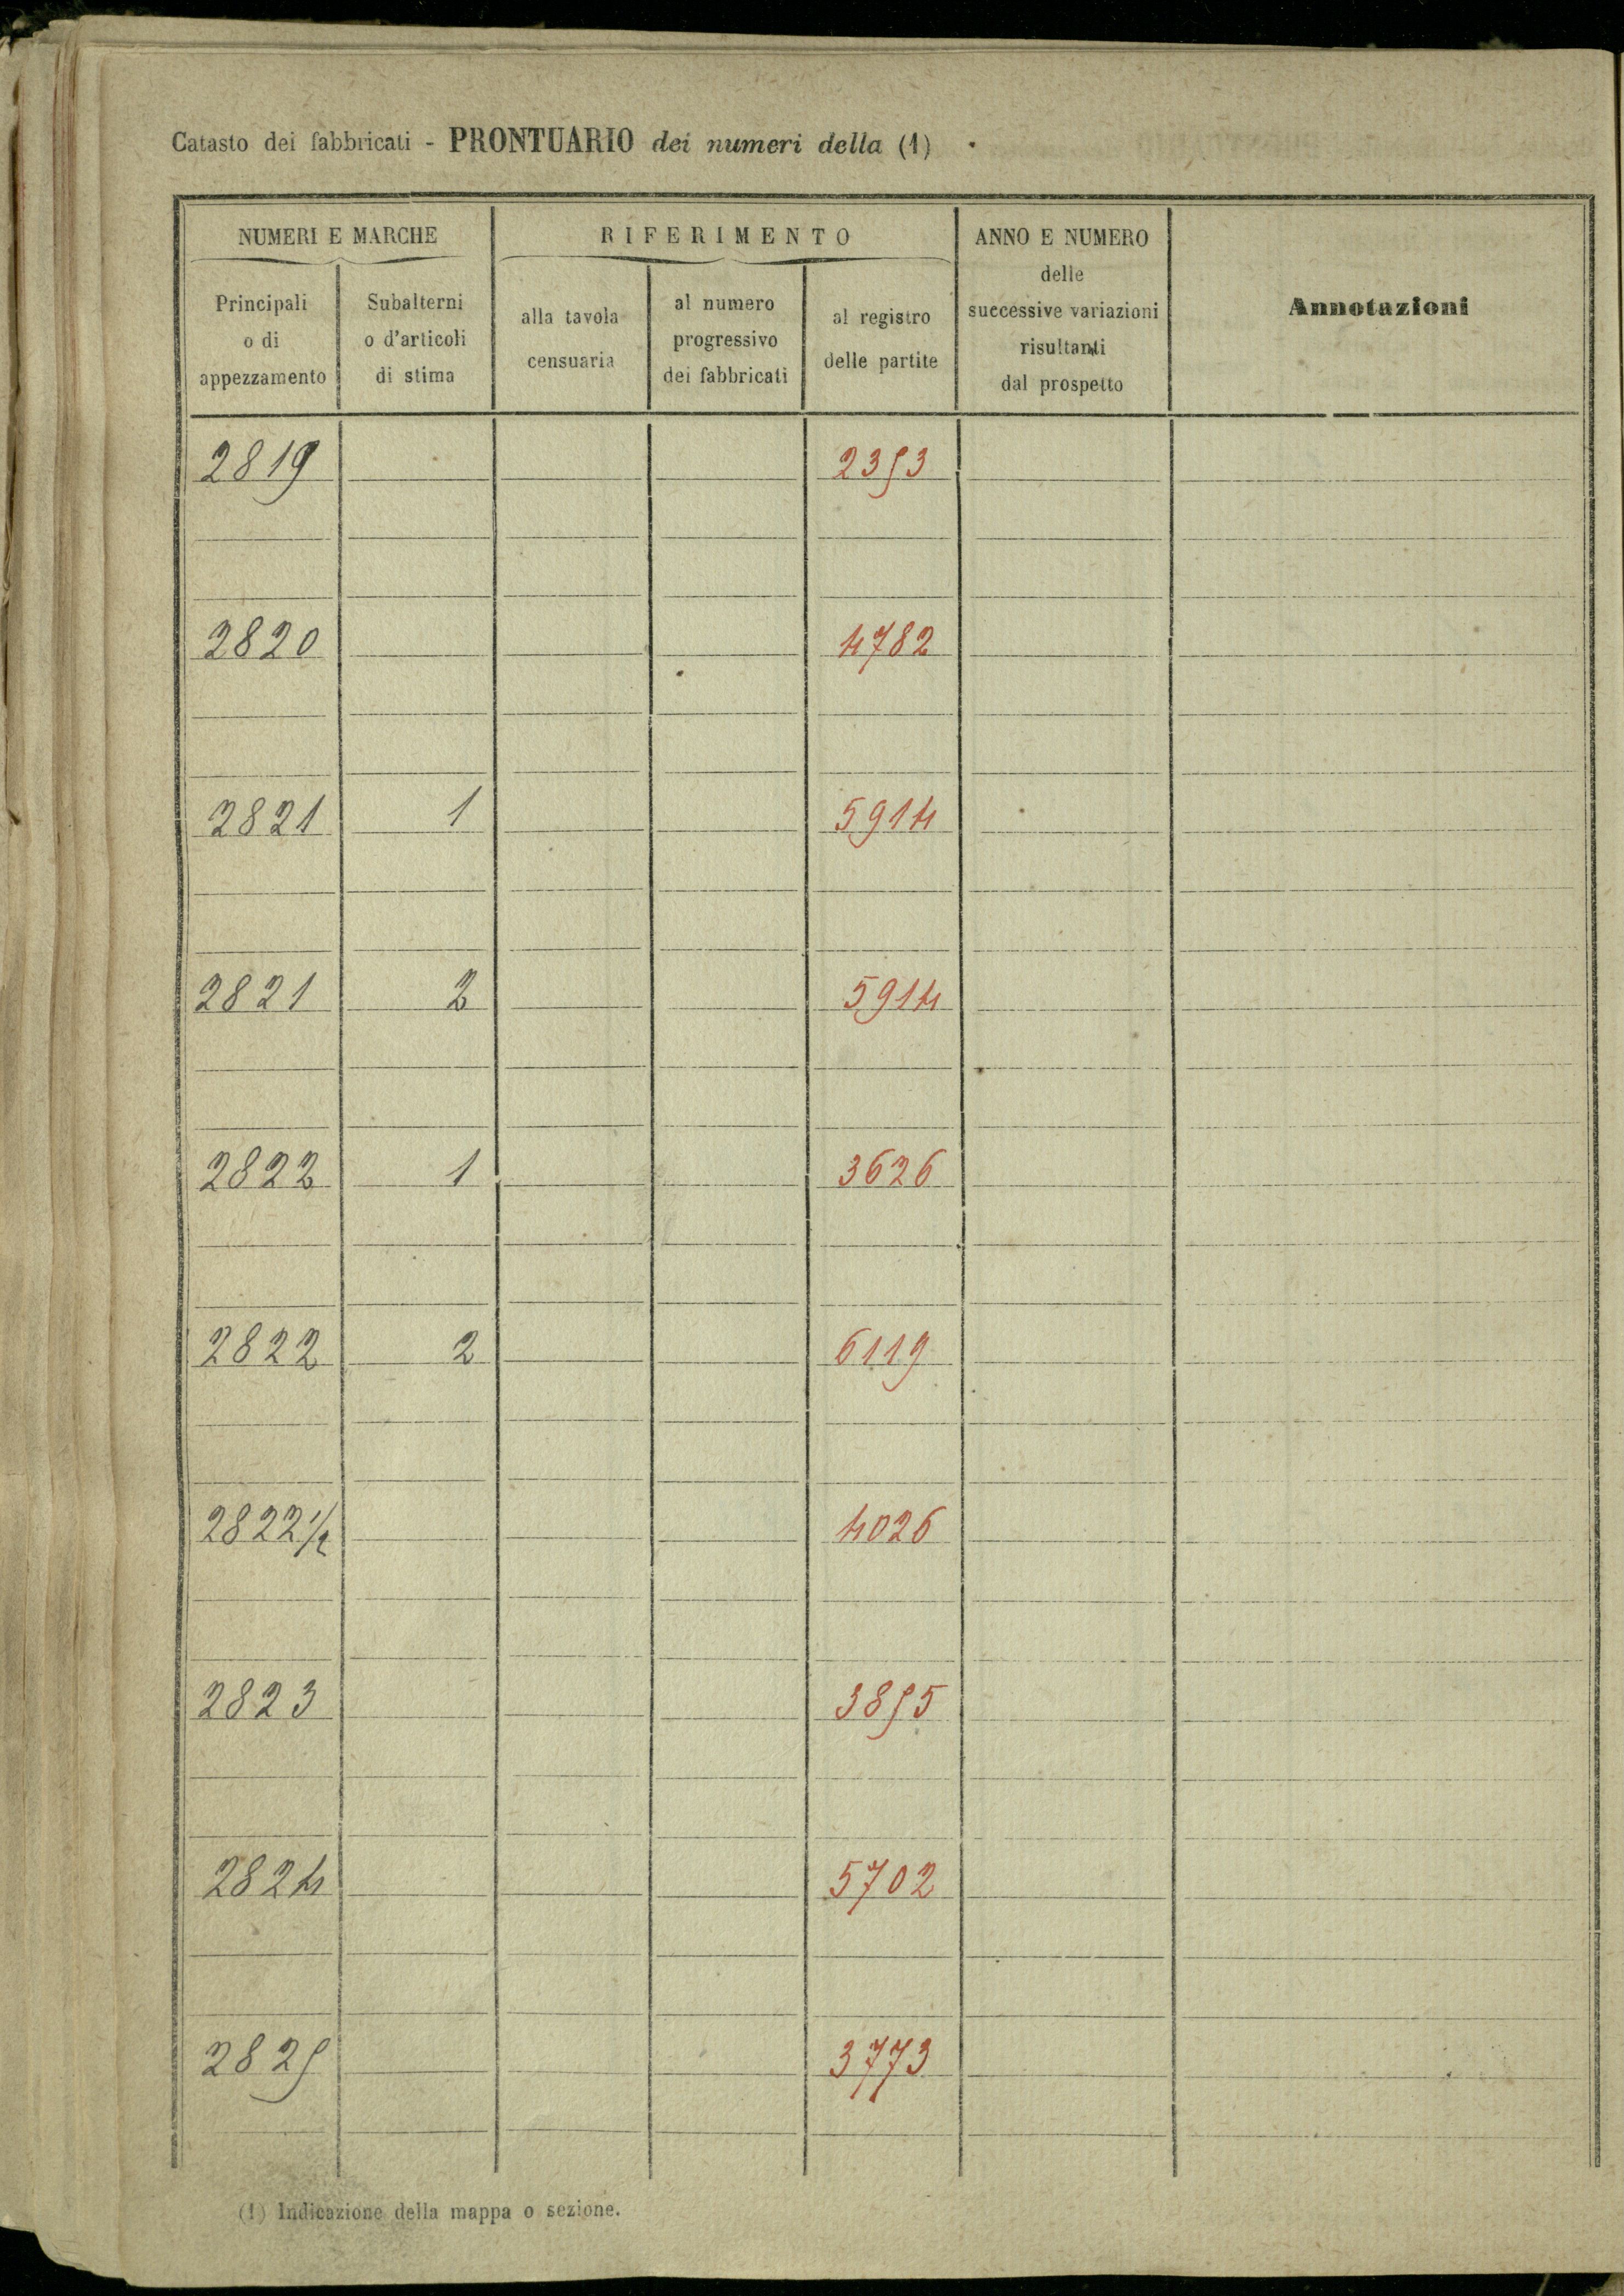 Catasto dei fabbricati - PRONTUARIO dei numeri della (1)
NUMERI E MARCHE
RIFERIMENTO
ANNO E NUMERO
delle
successive variazioni
risultanti
dal prospetto
Annotazioni
Principali
o di
appezzamento
Subalterni
o d'articoli
di stima
alla tavola
censuaria
al numero
progressivo
dei fabbricati
al registro
delle partite
2819 2353
2820 4782
2821 1 5914
2821 2 5914
2822 1 3626
2822 2 6119
2822 1/2 4026
2823 3855
2824 5702
2825 3773
(1) Indicazione della mappa o sezione.